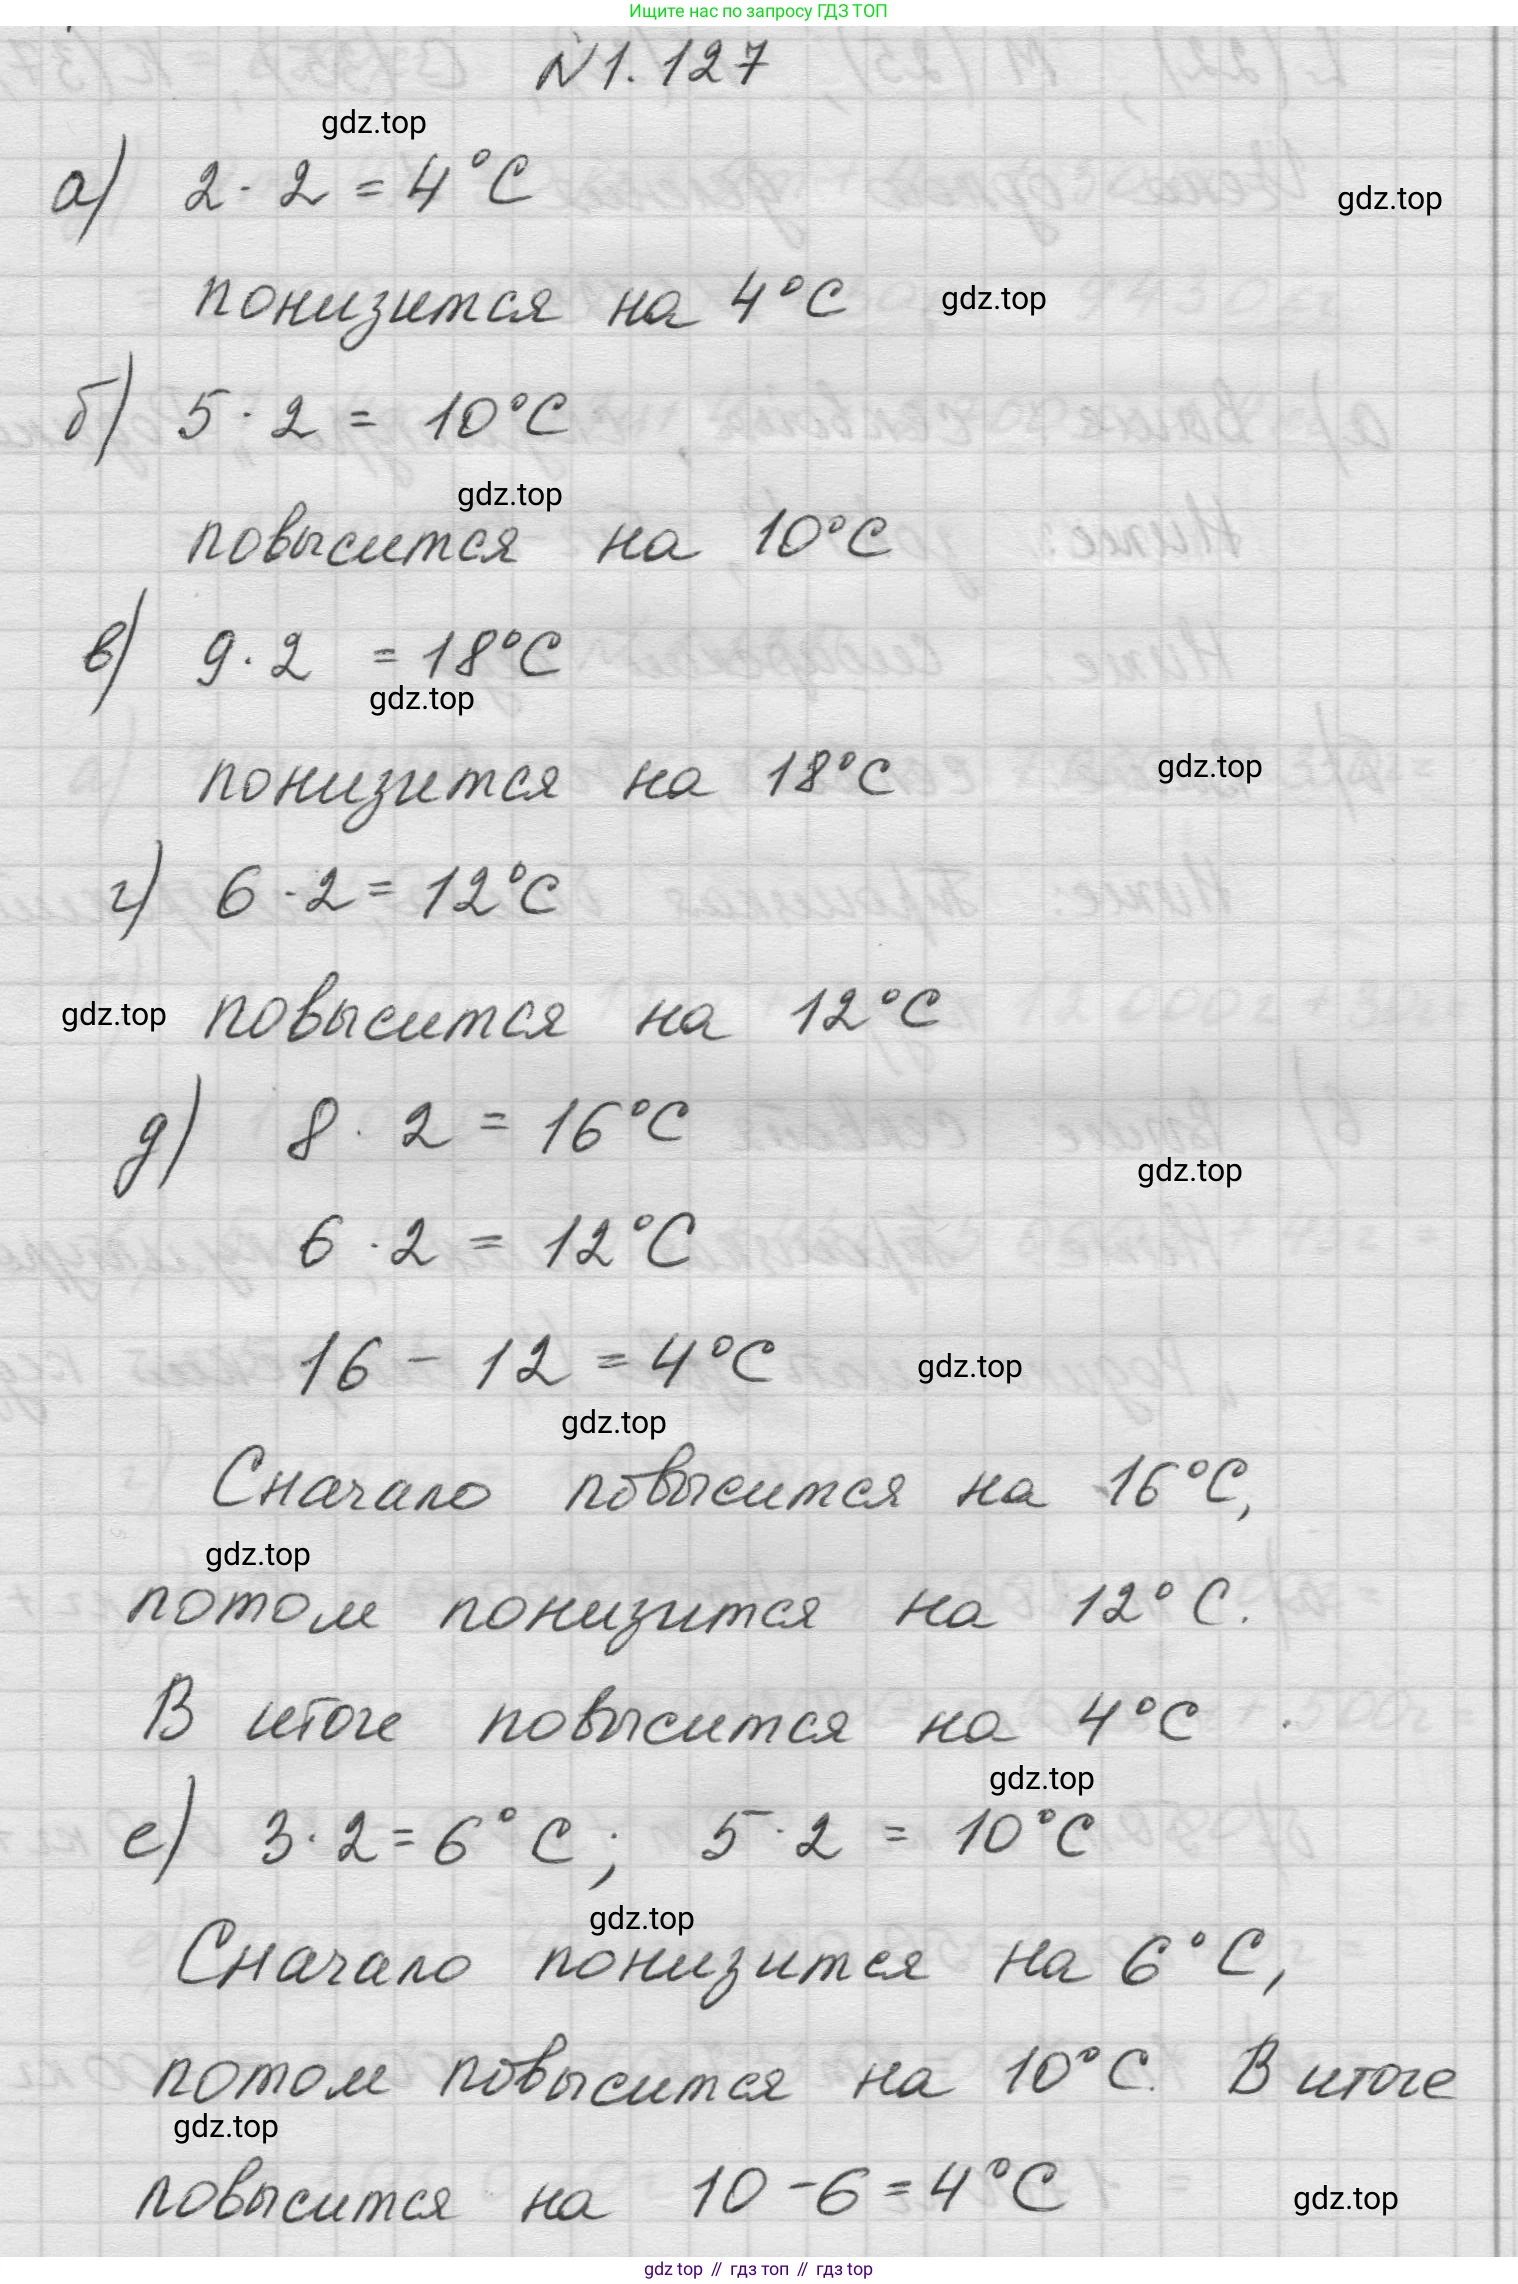 Ищите нас по запросу ГДЗ ТОП
N1.127
gdz.top
а) 2 · 2 = 4°С
gdz.top
понизится на 4°С gdz.top
б) 5 · 2 = 10°С
gdz.top
повысится на 10°С
в) 9 · 2 = 18°С
gdz.top
понизится на 18°С gdz.top
г) 6 · 2 = 12°С
gdz.top повысится на 12°С
д) 8 · 2 = 16°С
gdz.top
6 · 2 = 12°С
16 - 12 = 4°С gdz.top
gdz.top
Сначало повысится на 16°С,
gdz.top
потом понизится на 12°С.
В итоге повысится на 4°С.
gdz.top
е) 3 · 2 = 6°С; 5 · 2 = 10°С
gdz.top
Сначало понизится на 6°С,
потом повысится на 10°С. В итоге
gdz.top
повысится на 10 - 6 = 4°С
gdz.top
gdz top // гдз топ // гдз top